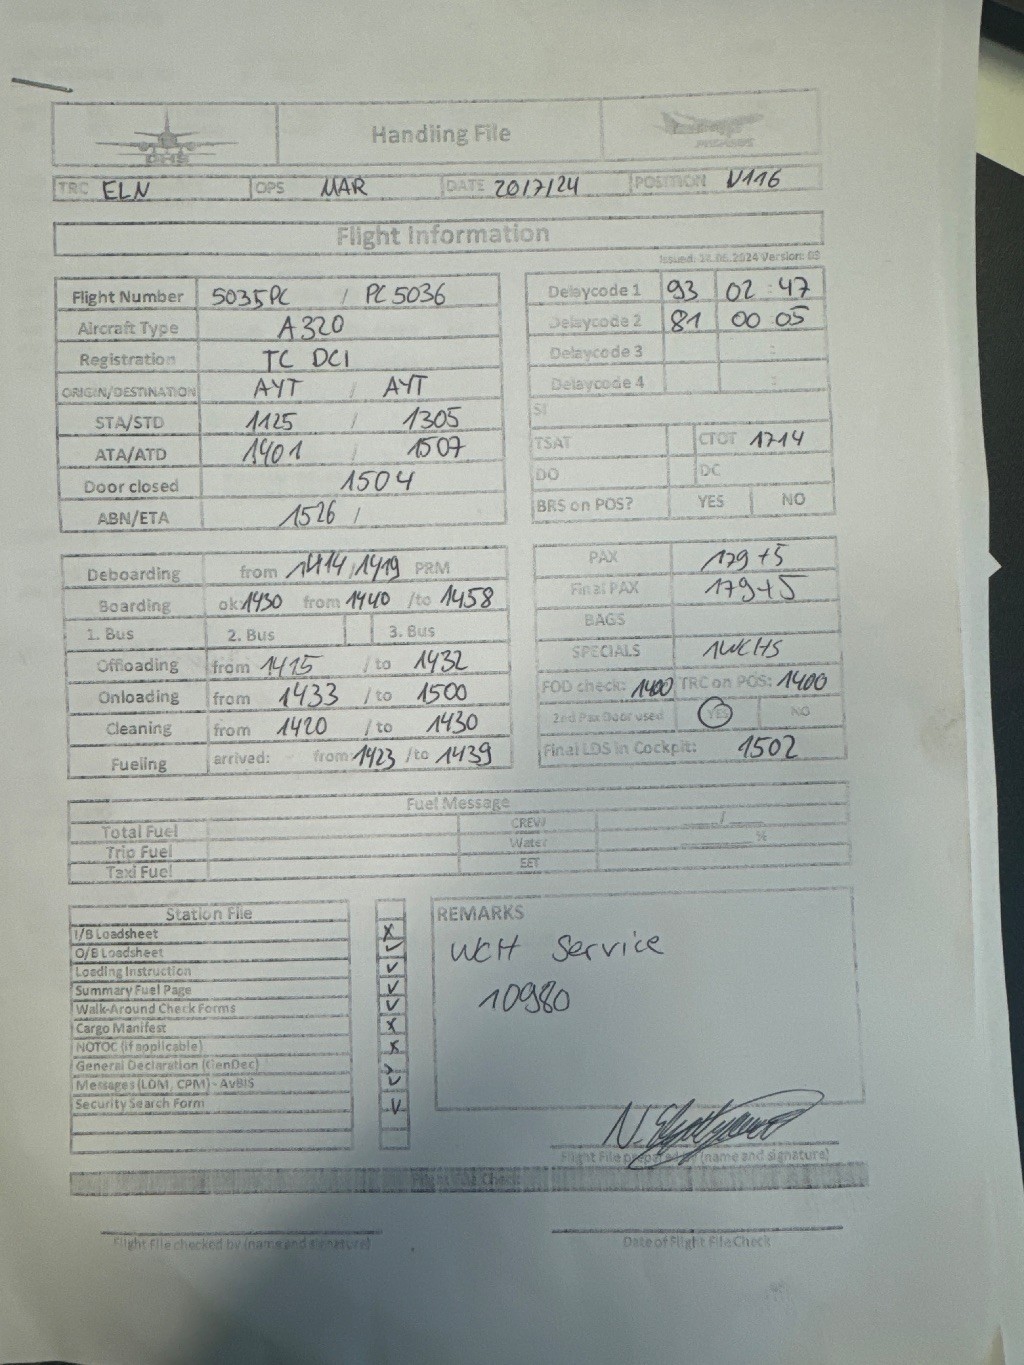 Handling File
TRC ELN OPS MAR DATE 20/7/24 POSITION V116
Flight Information
Issued: 18.06.2024 Version: 03
Flight Number 5035PC / PC5036
Aircraft Type A320
Registration TC DCI
ORIGIN/DESTINATION AYT / AYT
STA/STD 1125 / 1305
ATA/ATD 1401 / 1507
Door closed 1504
ABN/ETA 1526 /
Delaycode 1 93 02 : 47
Delaycode 2 81 00 : 05
Delaycode 3 :
Delaycode 4 :
SI
TSAT CTOT 1714
DO DC
BRS on POS? YES NO
Deboarding from 1414 / 1419 PRM
Boarding ok: 1430 from 1440 /to 1458
1. Bus 2. Bus 3. Bus
Offloading from 1415 / to 1432
Onloading from 1433 / to 1500
Cleaning from 1420 / to 1430
Fueling arrived: from 1423 /to 1439
PAX 179+5
Final PAX 179+5
BAGS
SPECIALS 1WCHS
FOD check: 1400 TRC on POS: 1400
2nd Pax Door used YES NO
Final LDS in Cockpit: 1502
Fuel Message
Total Fuel CREW /
Trip Fuel Water %
Taxi Fuel EET
Station File
I/B Loadsheet x
O/B Loadsheet ✓
Loading Instruction ✓
Summary Fuel Page ✓
Walk-Around Check Forms ✓
Cargo Manifest x
NOTOC (if applicable) x
General Declaration (GenDec) ✓
Messages (LDM, CPM) - AvBIS ✓
Security Search Form ✓
REMARKS
WCH Service
10980
Flight File prepared by (name and signature)
Flight File Check
Flight File checked by (name and signature)
Date of Flight File Check